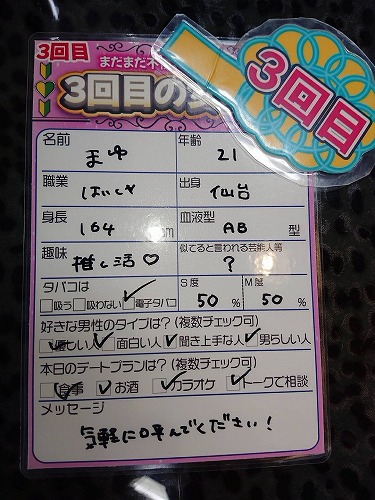 3回目
まだまだ不
3回目の
3回目
名前 年齢
まゆ 21
職業 出身 仙台
身長 血液型
164 cm AB 型
趣味 似てると言われる芸能人等
推し活♡ ?
タバコは S度 M度
□吸う □吸わない □電子タバコ 50 % 50 %
好きな男性のタイプは?(複数チェック可)
□優しい人 □面白い人 □聞き上手な人 □男らしい人
本日のデートプランは?(複数チェック可)
□食事 □お酒 □カラオケ □トークで相談
メッセージ
気軽に呼んでください!